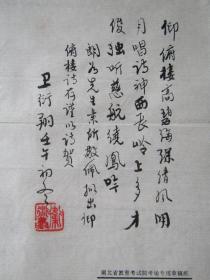 仰俯楼高碧海深清风明
月唱诗神西长岭上多才
俊独听慈航绕凤吟
朗为先生素所敬佩拟出仰
俯楼诗存谨以诗贺
卫衍翔壬午初冬
湖北省教育考试院考试专用草稿纸